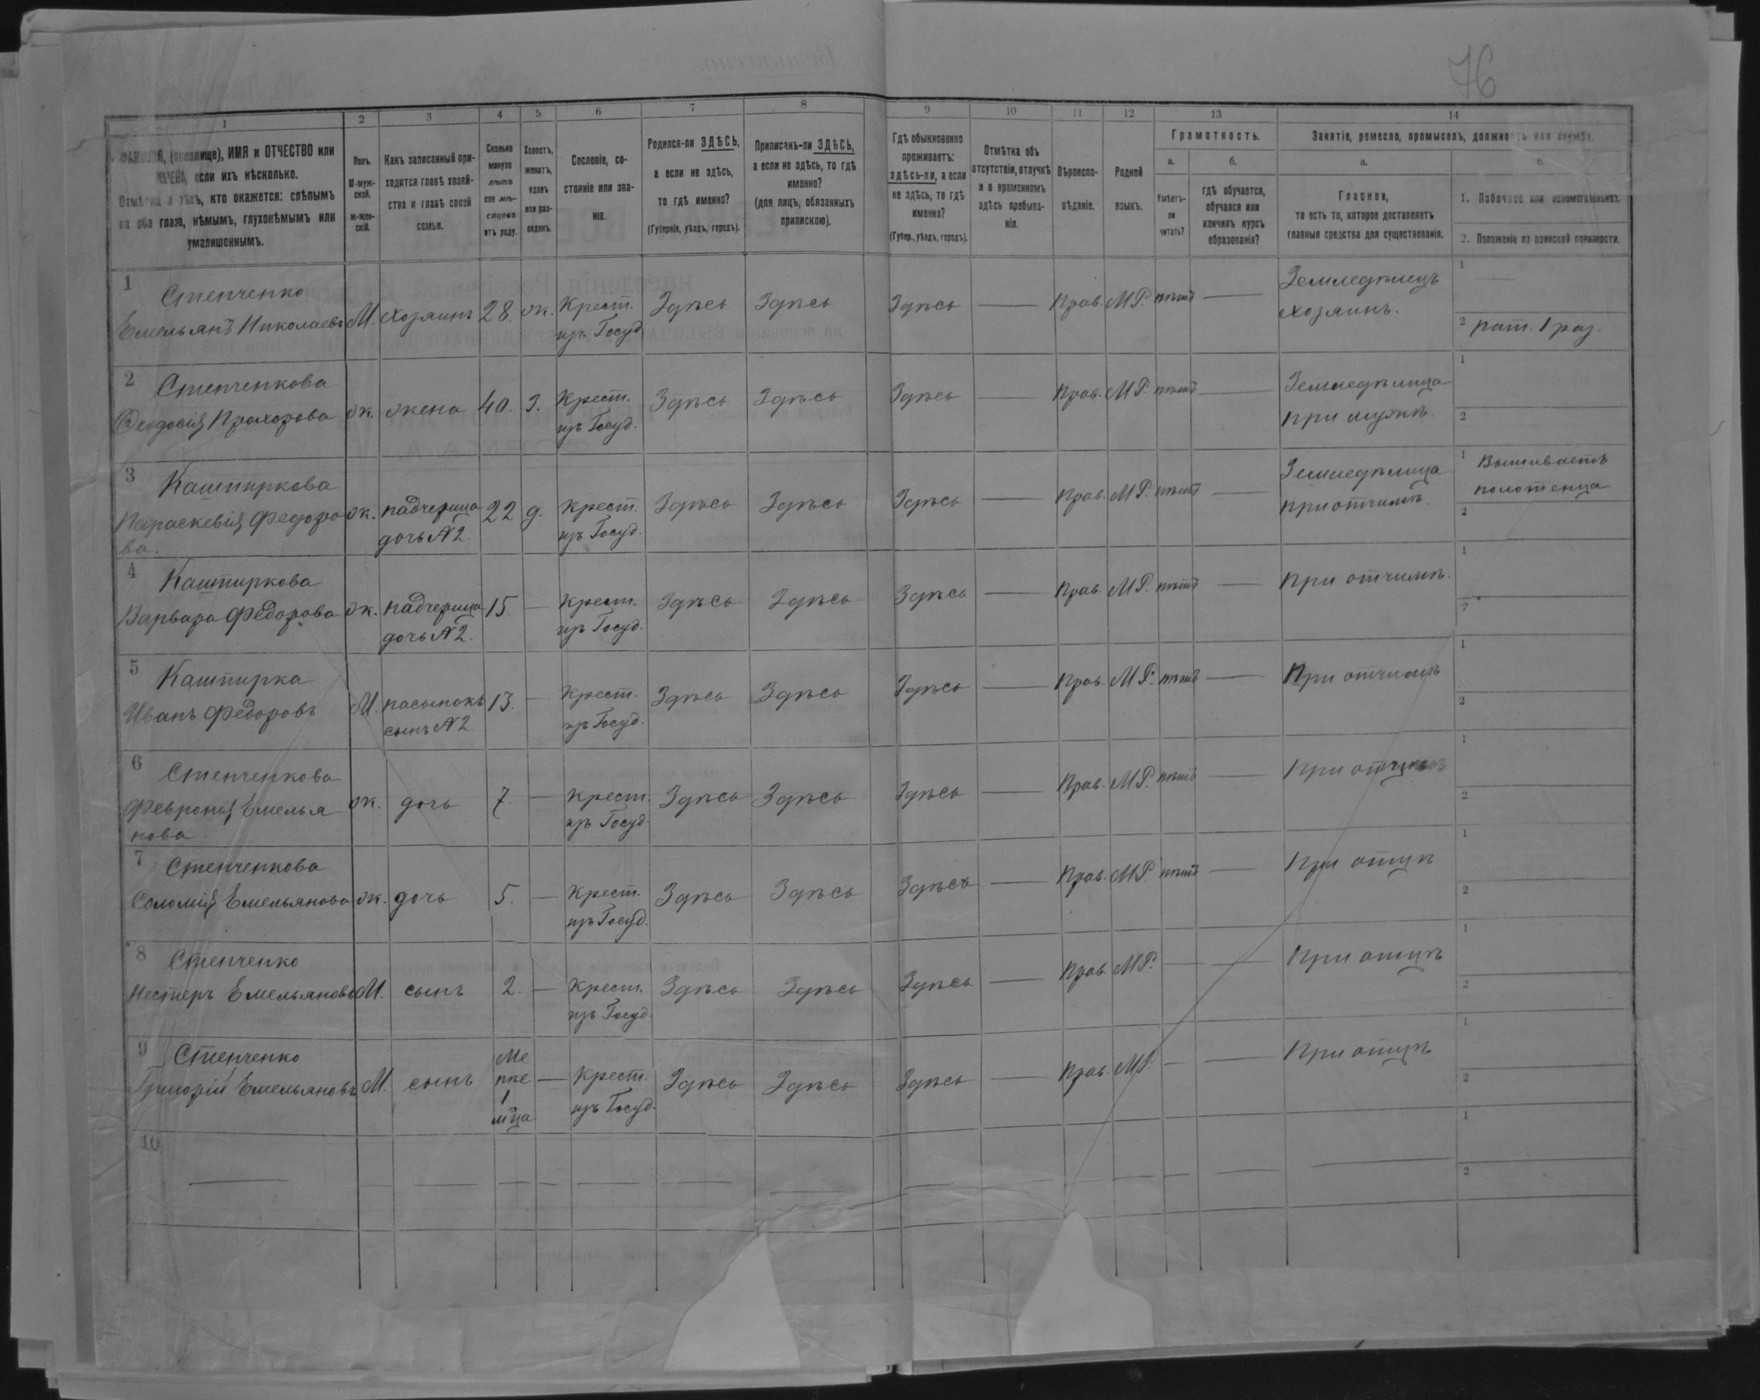 76
1 2 3 4 5 6 7 8 9 10 11 12 13 14
ФАМИЛІЯ, (прозвище), ИМЯ и ОТЧЕСТВО или
если ихъ нѣсколько.
Отмѣтка о тѣхъ, кто окажется: слѣпымъ
на оба глаза, нѣмымъ, глухонѣмымъ или
умалишеннымъ.
Полъ.
М-муж-
ской.
ж-жен-
скій.
Какъ записанный при-
ходится главѣ хозяй-
ства и главѣ своей
семьи.
Сколько
минуло
лѣтъ
или мѣ-
сяцевъ
отъ роду.
Холостъ,
женатъ,
вдовъ
или раз-
веденъ.
Сословіе, со-
стояніе или зва-
ніе.
Родился-ли ЗДѢСЬ,
а если не здѣсь,
то гдѣ именно?
(Губернія, уѣздъ, городъ).
Приписанъ-ли ЗДѢСЬ,
а если не здѣсь, то гдѣ
именно?
(для лицъ, обязанныхъ
припискою).
Гдѣ обыкновенно
проживаетъ:
здѣсь-ли, а если
не здѣсь, то гдѣ
именно?
(Губер., уѣздъ, городъ).
Отмѣтка объ
отсутствіи, отлучкѣ
и о временномъ
здѣсь пребыва-
ніи.
Вѣроиспо-
вѣданіе.
Родной
языкъ.
Грамотность.
а.
Умѣетъ-
ли
читать?
б.
гдѣ обучается,
обучался или
кончилъ курсъ
образованія?
Занятіе, ремесло, промыселъ, должность или служба.
а.
Главное,
то есть то, которое доставляетъ
главныя средства для существованія.
1. Побочное или вспомогательное.
2. Положеніе по воинской повинности.
1 Стенченко
Емельянъ Николаевъ М. хозяинъ 28. ж. Крест. Здѣсь Здѣсь Здѣсь — Прав. М.Р. нѣтъ — Земледѣлецъ
изъ Госуд. хозяинъ. 2 рат. 1 раз.
2 Стенченкова
Феодосія Прохорова ж. жена 40. З. Крест. Здѣсь Здѣсь Здѣсь — Прав. М.Р. нѣтъ — Земледѣлица
изъ Госуд. при мужѣ.
3 Каштиркова
Параскевія Федоро ж. падчерица 22 д. Крест. Здѣсь Здѣсь Здѣсь — Прав. М.Р. нѣтъ — Земледѣлица 1 Вышиваетъ
ва. дочь №2 изъ Госуд. при отчимѣ. полотенца
4 Каштиркова
Варвара Федорова ж. падчерица 15. — Крест. Здѣсь Здѣсь Здѣсь — Прав. М.Р. нѣтъ — При отчимѣ.
дочь №2. изъ Госуд.
5 Каштирка
Иванъ Федоровъ М. пасынокъ 13. — Крест. Здѣсь Здѣсь Здѣсь — Прав. М.Р. нѣтъ — При отчимѣ
сынъ №2. изъ Госуд.
6 Стенченкова
Февронія Емелья ж. дочь 7. — Крест. Здѣсь Здѣсь Здѣсь — Прав. М.Р. нѣтъ — При
нова изъ Госуд.
7 Стенченкова
Соломія Емельянова ж. дочь 5. — Крест. Здѣсь Здѣсь Здѣсь — Прав. М.Р. нѣтъ — При отцѣ
изъ Госуд.
8 Стенченко
Нестеръ Емельяновъ М. сынъ 2. — Крест. Здѣсь Здѣсь Здѣсь — Прав. М.Р. — — При отцѣ
изъ Госуд.
9 Стенченко
Григорій Емельяновъ М. сынъ Ме
нѣе
1
м‑ца — Крест. Здѣсь Здѣсь Здѣсь — Прав. М.Р. — — При отцѣ
изъ Госуд.
10